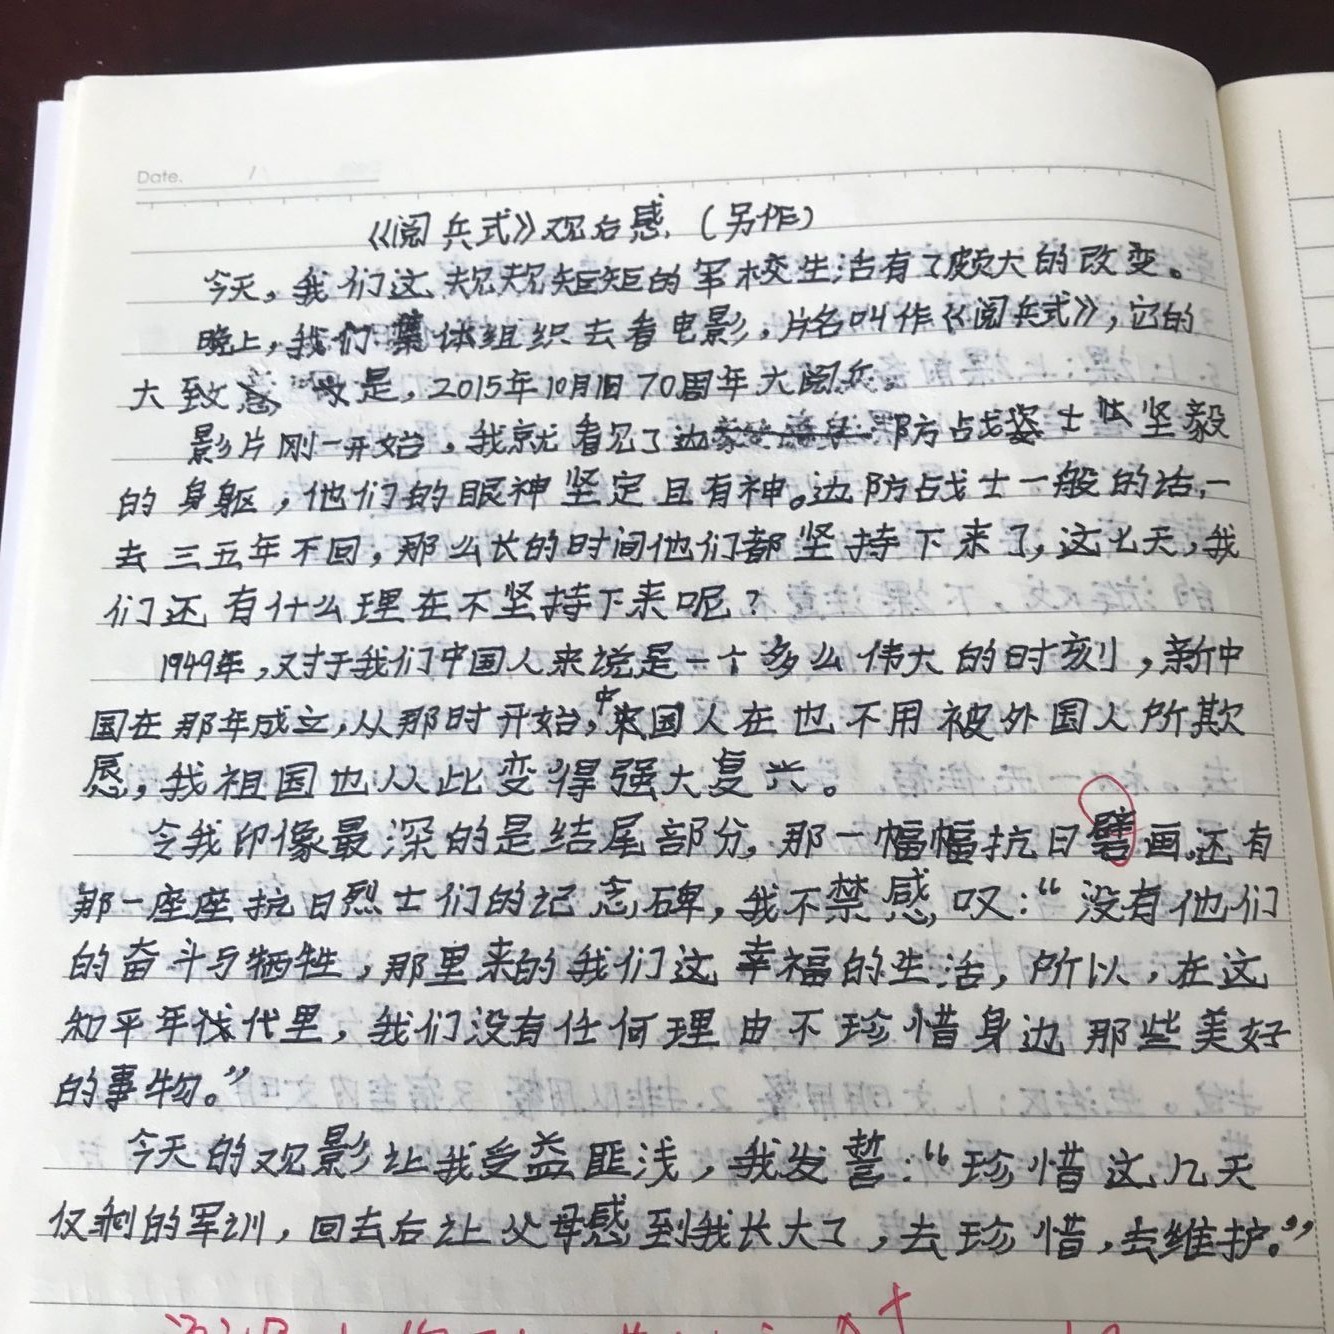 Date.
《阅兵式》观后感.(另作)
今天,我们这规规矩矩的军校生活有了颇大的改变。
晚上,我们集体组织去看电影,片名叫作《阅兵式》,它的
大致意 是,2015年10月1日70周年大阅兵。
影片刚一开始,我就看见了边 防战 士 坚毅
的身躯,他们的眼神坚定且有神。边防战士一般的话,一
去三五年不回,那么长的时间他们都坚持下来了,这七天,我
们还有什么理在不坚持下来呢?
1949年,对于我们中国人来说是一个多么伟大的时刻,新中
国在那年成立,从那时开始,中国人在也不用被外国人所欺
辱,我祖国也从此变得强大复兴。
令我印像最深的是结尾部分,那一幅幅抗日壁画,还有
那一座座抗日烈士们的记念碑,我不禁感叹:“没有他们
的奋斗与牺牲,那里来的我们这幸福的生活,所以,在这
和平年代里,我们没有任何理由不珍惜身边那些美好
的事物。”
今天的观影让我受益匪浅,我发誓:“珍惜这几天
仅剩的军训,回去后让父母感到我长大了,去珍惜,去维护。”